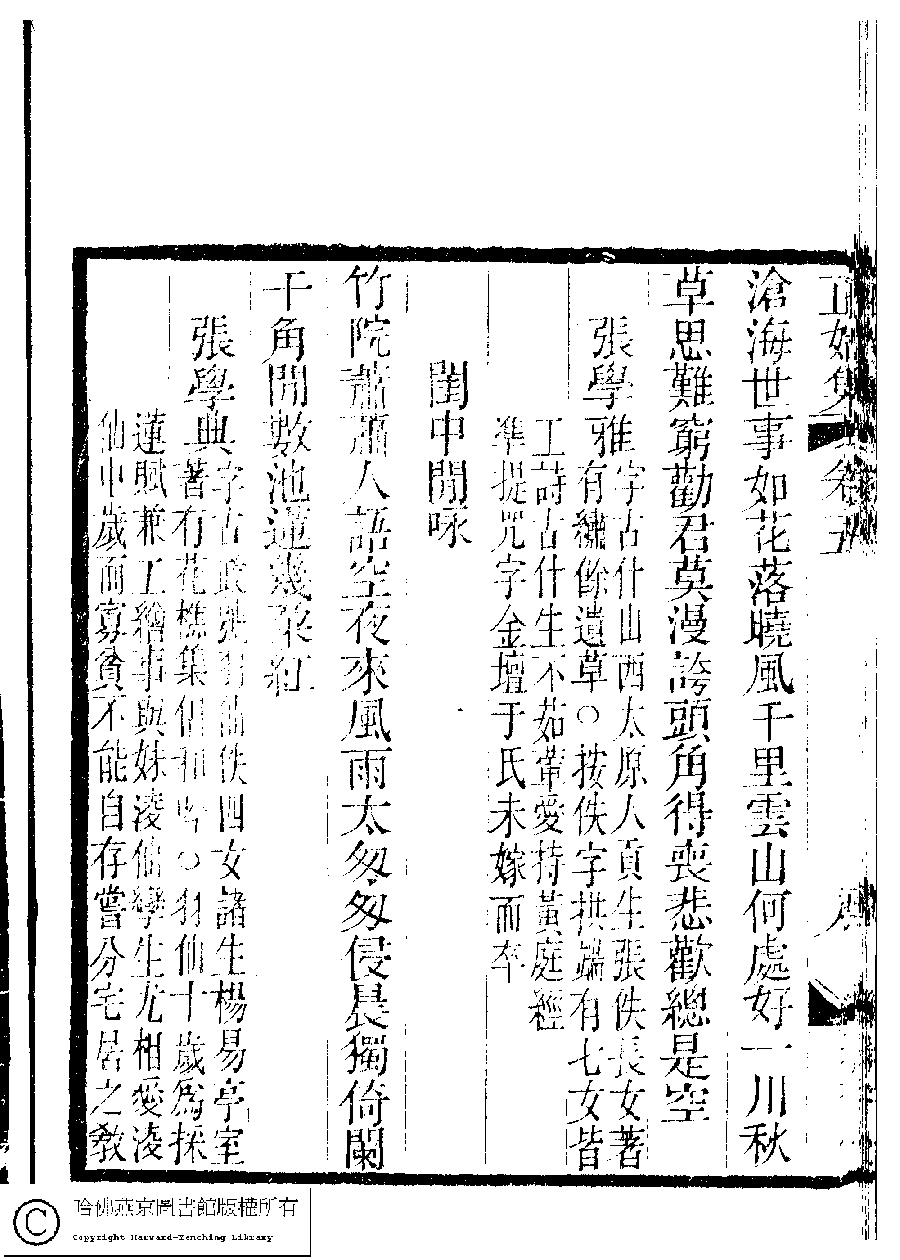 正始集 卷五
滄海世事如花落曉風千里雲山何處好一川秋
草思難窮勸君莫漫誇頭角得喪悲歡總是空
張學雅字古什山西太原人貢生張佚長女著
有繡餘遺草○按佚字拱端有七女皆
工詩古什生不茹葷愛持黃庭經
準提咒字金壇于氏未嫁而卒
閨中閒咏
竹院蕭蕭人語空夜來風雨太匆匆侵晨獨倚闌
干角閒數池蓮幾朵紅
張學典字古政號羽仙佚四女諸生楊易亭室
著有花樵集倡和吟○羽仙十歲爲採
蓮賦兼工繪事與妹淩仙孿生尤相愛淩
仙中歲而寡貧不能自存嘗分宅居之敎
哈佛燕京圖書館版權所有
Copyright Harvard-Yenching Library